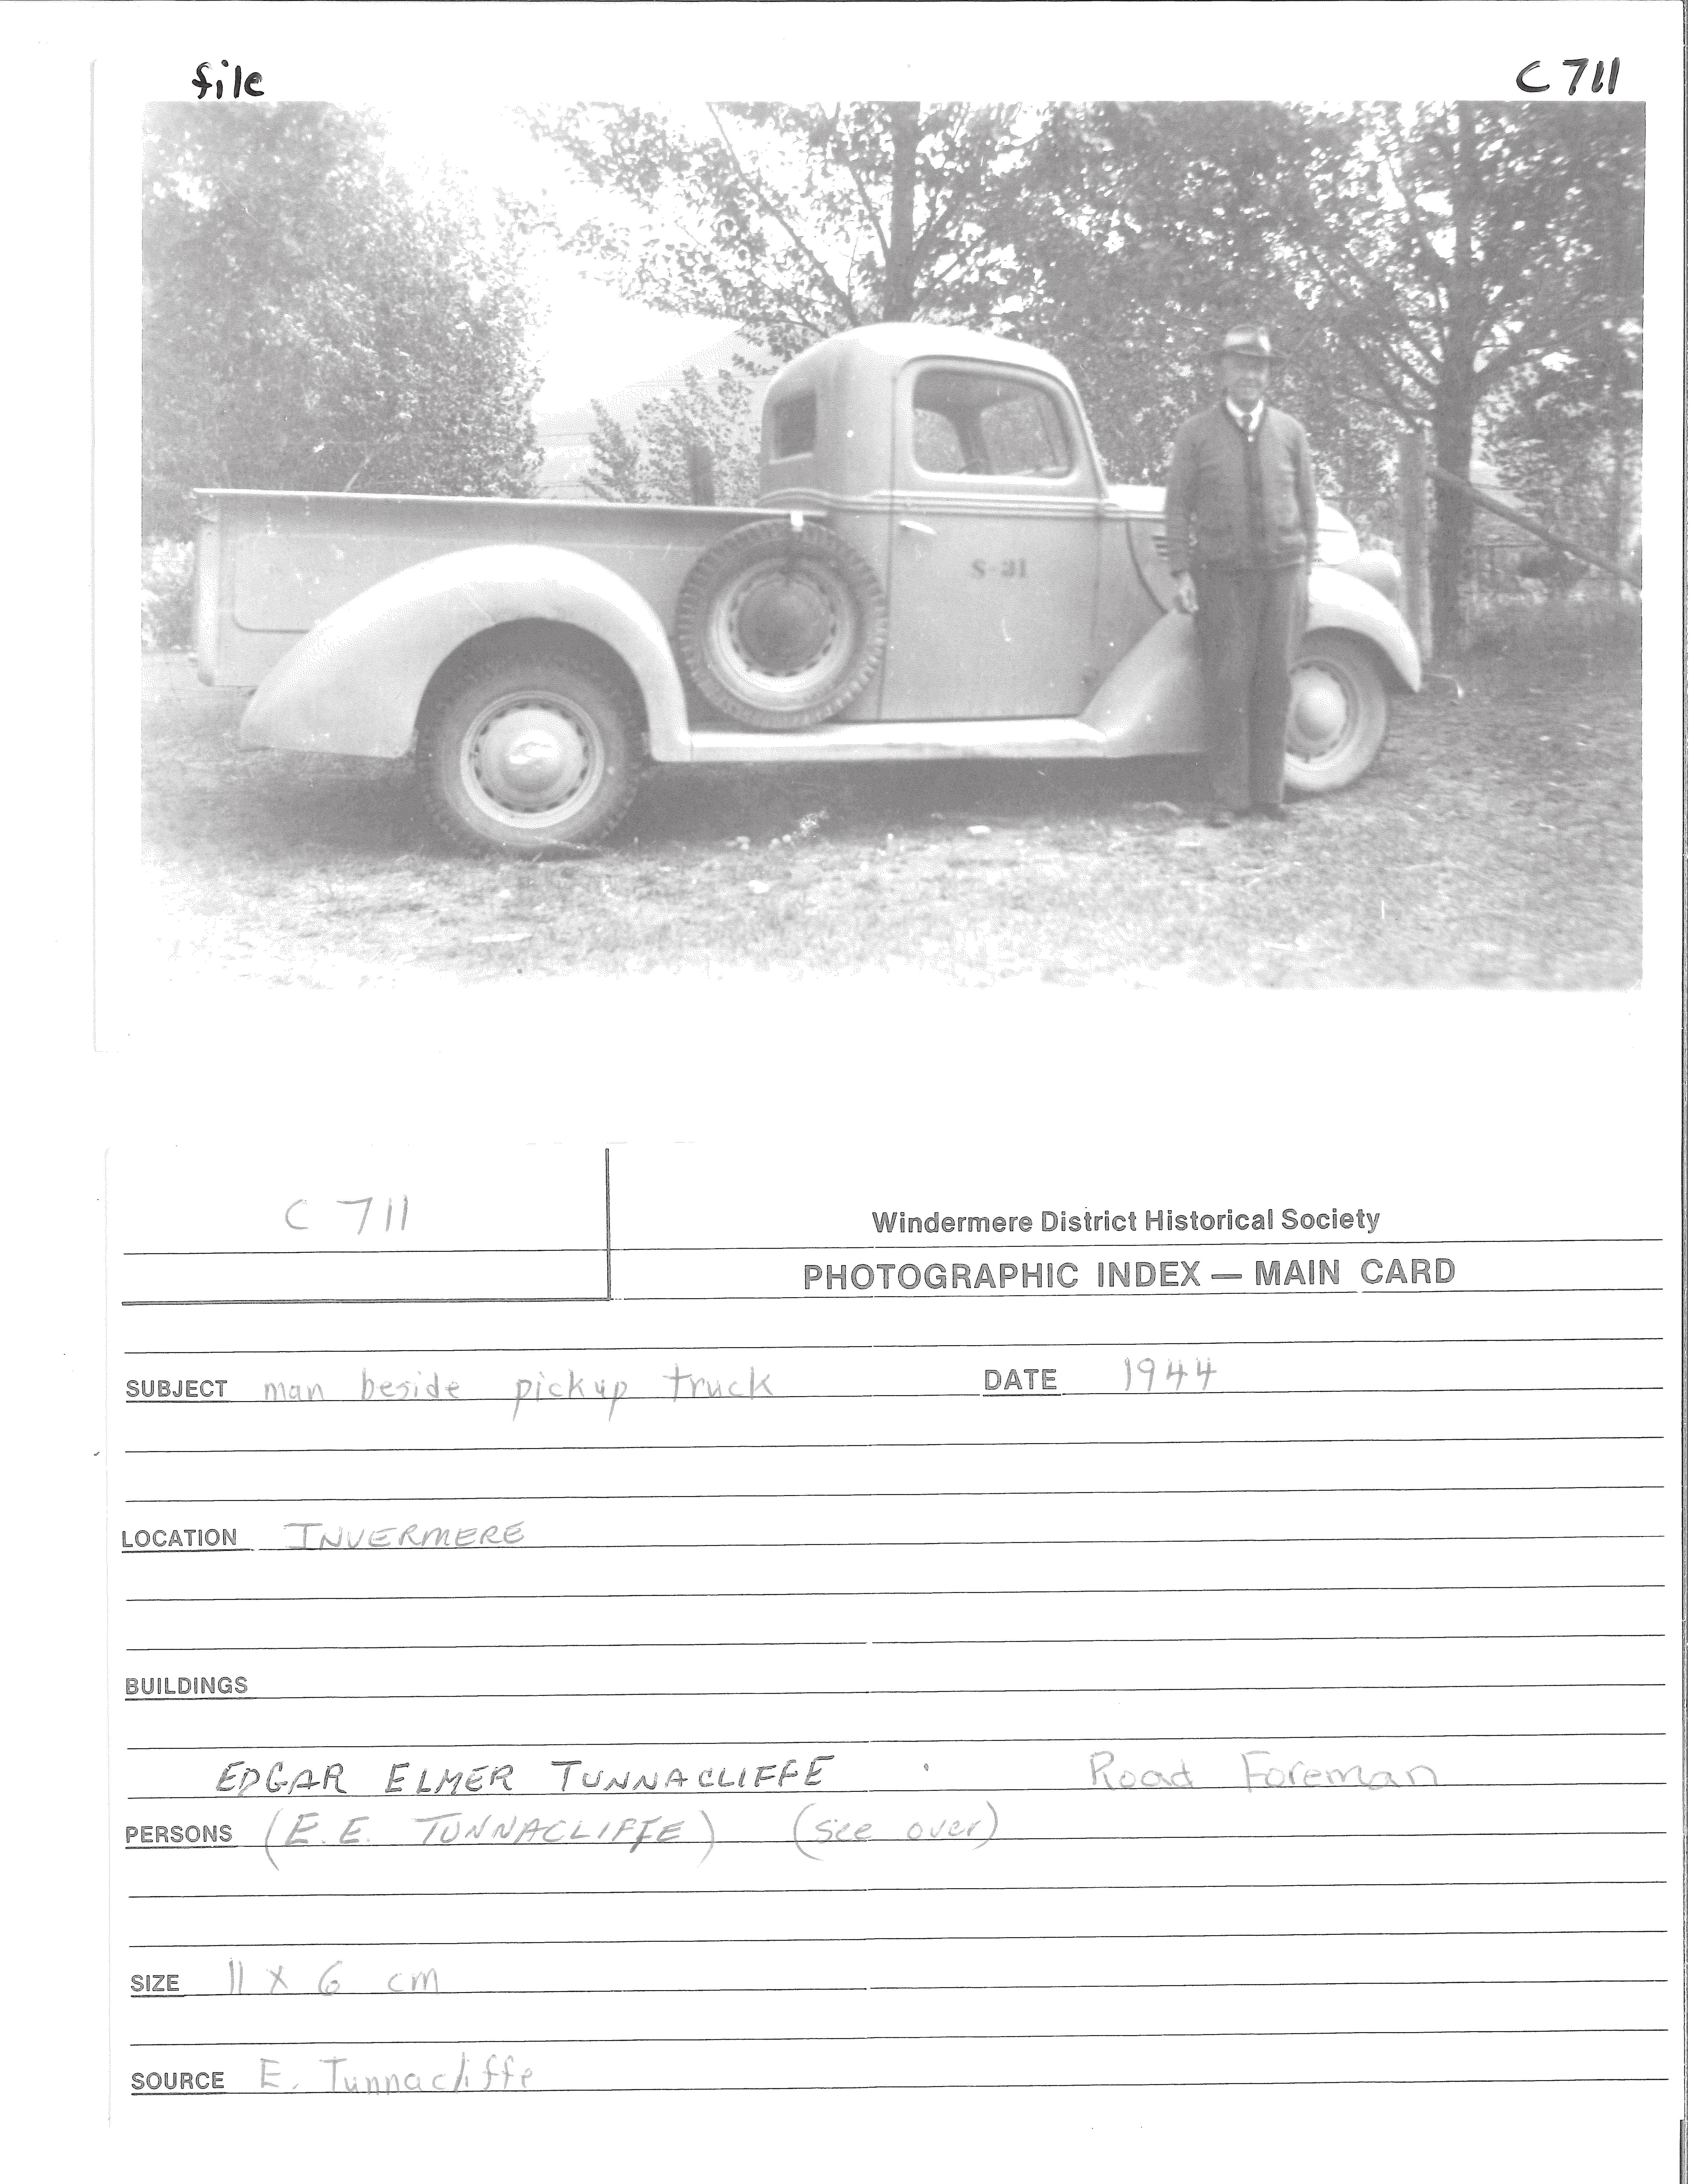 file
C 711
S-31
C 711
Windermere District Historical Society
PHOTOGRAPHIC INDEX — MAIN CARD
SUBJECT man beside pickup truck DATE 1944
LOCATION INVERMERE
BUILDINGS
EDGAR ELMER TUNNACLIFFE . Road Foreman
PERSONS (E.E. TUNNACLIFFE) (see over)
SIZE 11 x 6 cm
SOURCE E. Tunnacliffe